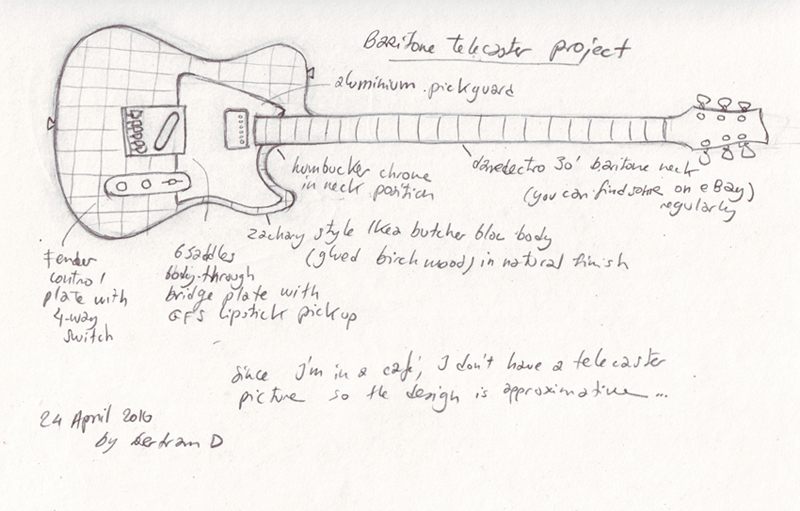 Baritone telecaster project
aluminium pickguard
humbucker chrome
in neck position
danedectro 30' baritone neck
(you can find some on eBay)
regularly
zachary style Ikea butcher bloc body
(glued birch wood) in natural finish
Fender
control
plate with
4-way
switch
6 saddles
body-through
bridge plate with
GFS lipstick pickup
Since I'm in a café, I don't have a telecaster
picture so the design is approximative...
24 April 2010
by Bertram D